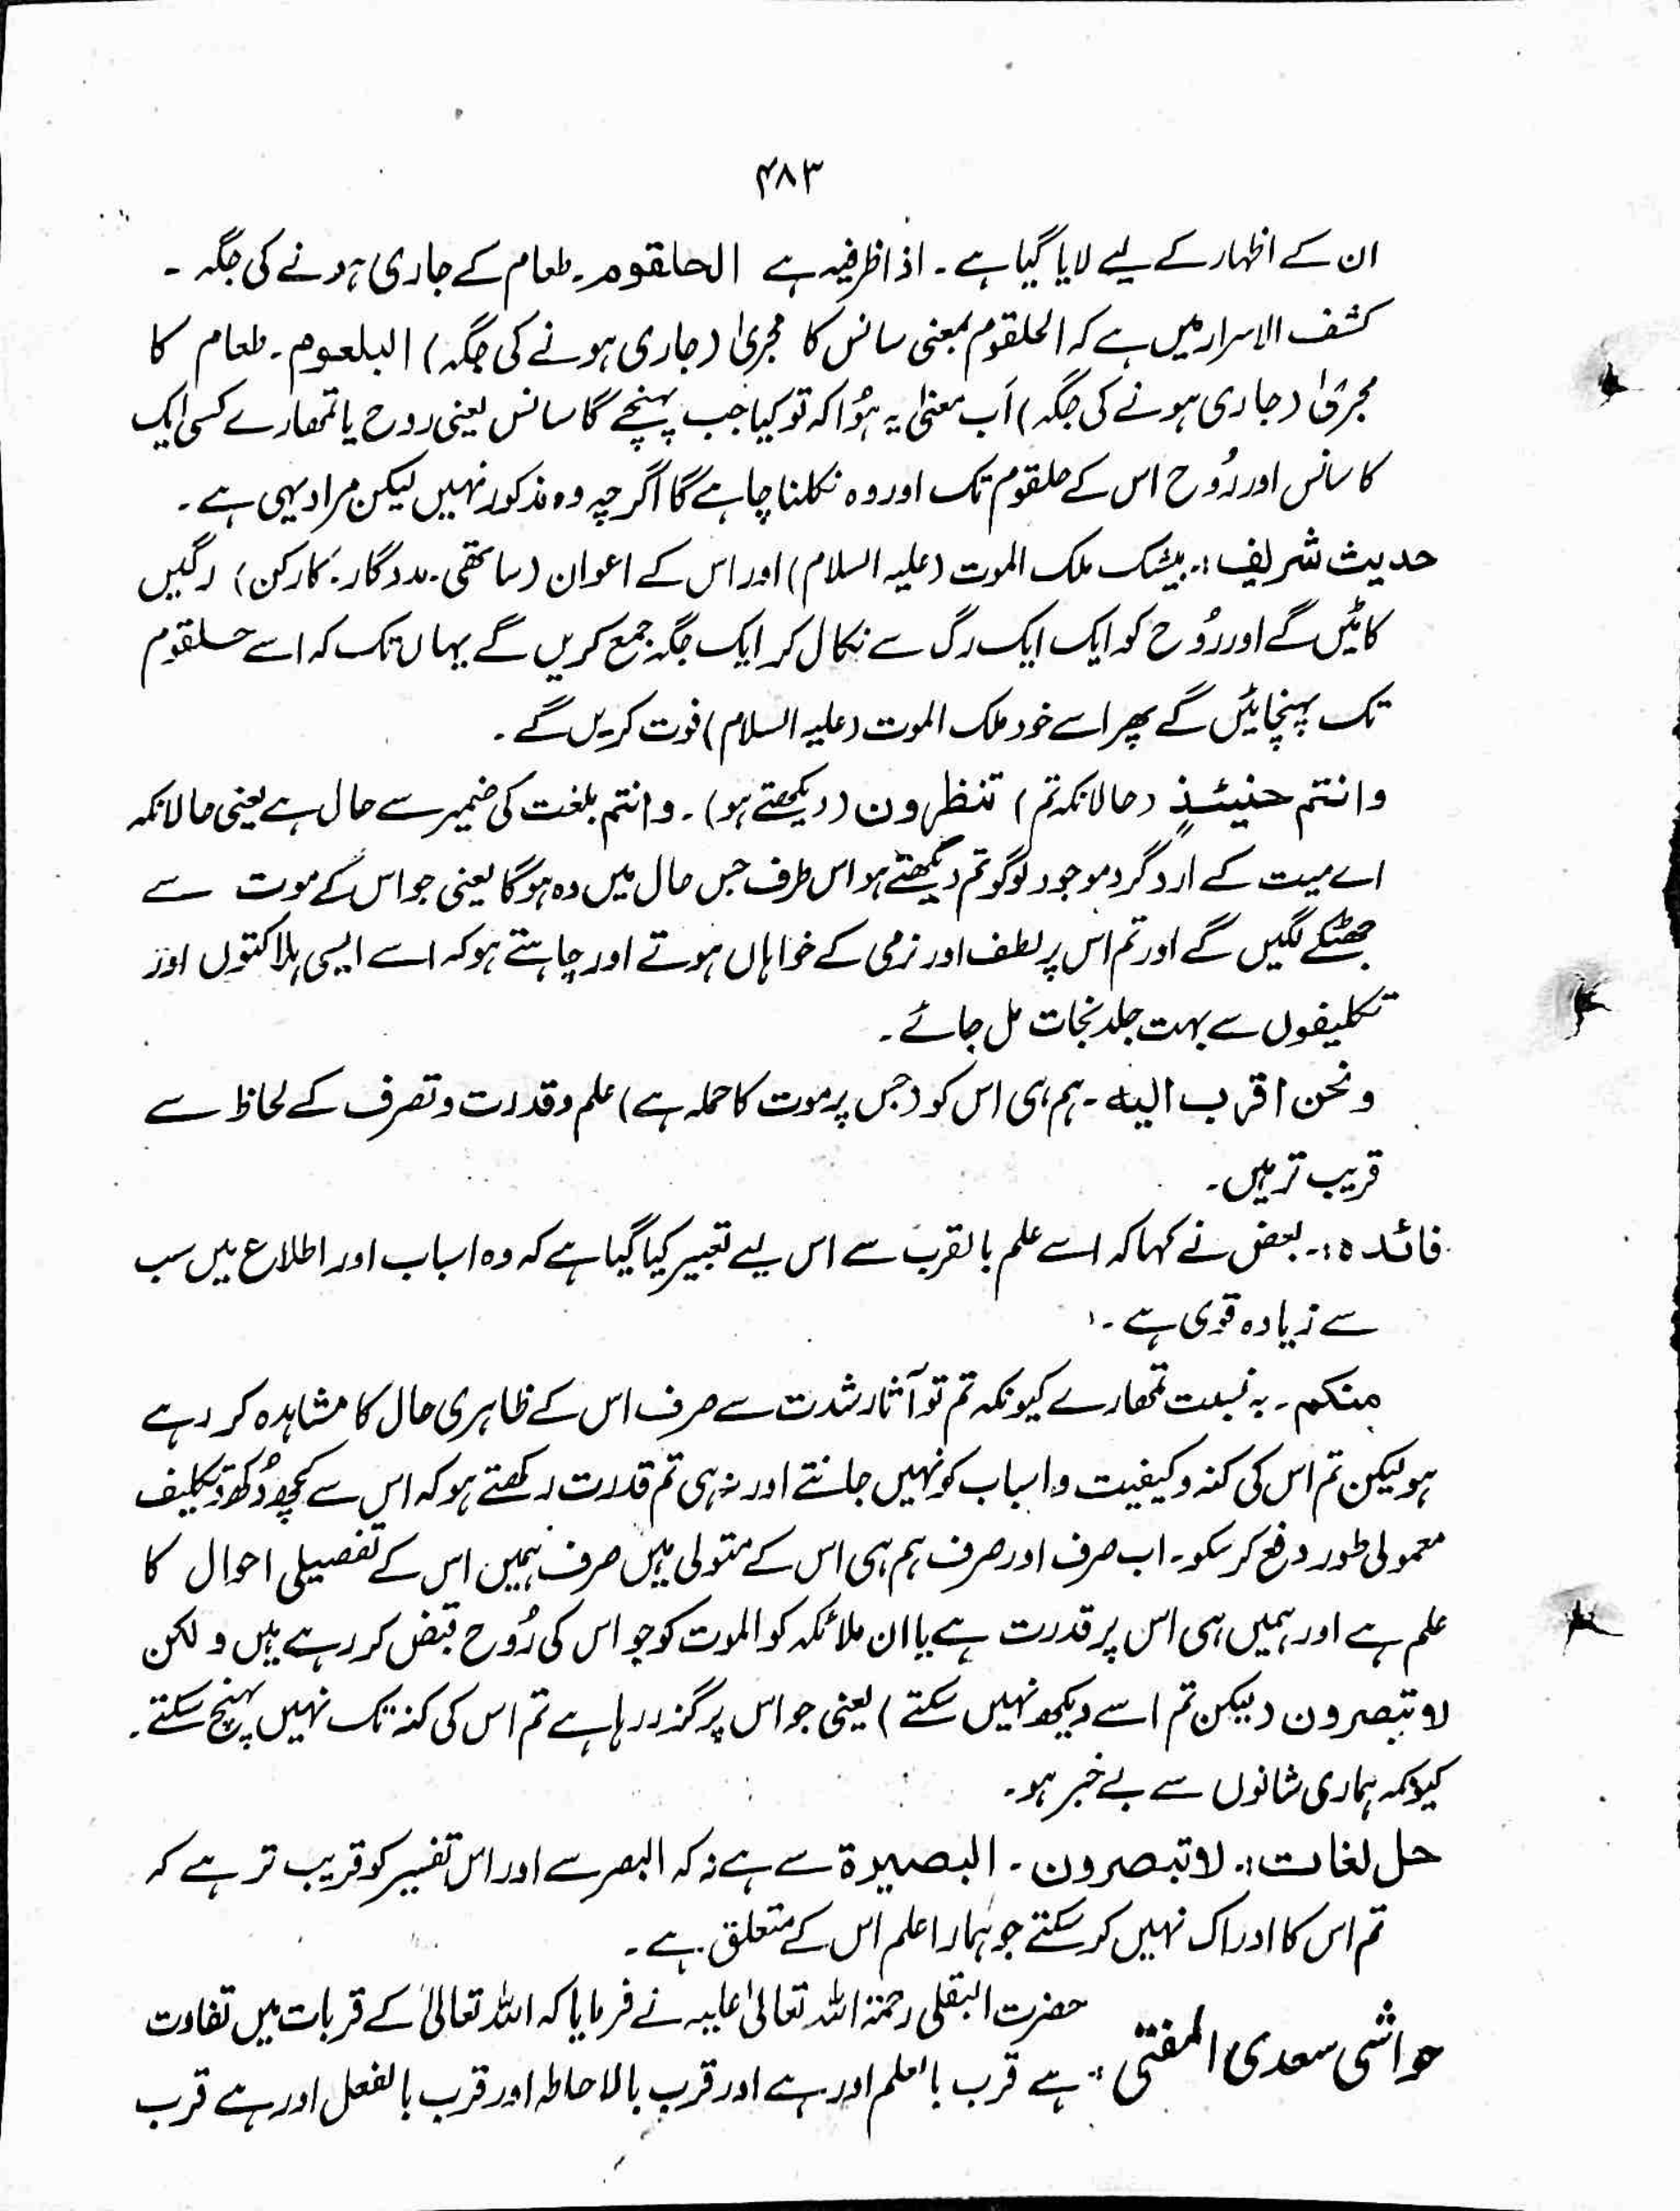 ۴۸۳
ان کے اظہار کے لیے لایا گیا ہے۔ اذا ظرفیہ ہے الحلقوم۔ طعام کے جاری ہونے کی جگہ۔
کشف الاسرار میں ہے کہ الحلقوم بمعنی سانس کا مجریٰ (جاری ہونے کی جگہ) البلعوم۔ طعام کا
مجریٰ (جاری ہونے کی جگہ) اَب معنیٰ یہ ہُوا کہ تو کیا جب پہنچے گا سانس یعنی روح یا تمھارے کسی ایک
کا سانس اور رُوح اس کے حلقوم تک اور وہ نکلنا چاہے گا اگرچہ وہ مذکور نہیں لیکن مراد یہی ہے۔
حدیث شریف :۔ بیشک ملک الموت (علیہ السلام) اور اس کے اعوان (ساتھی۔ مددگار۔ کارکن) رگیں
کاٹیں گے اور رُوح کو ایک ایک رگ سے نکال کر ایک جگہ جمع کریں گے یہاں تک کہ اسے حلقوم
تک پہنچائیں گے پھر اسے خود ملک الموت (علیہ السلام) فوت کریں گے۔
وانتم حنیئذٍ (حالانکہ تم) تنظرون (دیکھتے ہو)۔ وانتم بلغت کی ضمیر سے حال ہے یعنی حالانکہ
اے میت کے ارد گرد موجود لوگو تم دیکھتے ہو اس طرف جس حال میں وہ ہو گا یعنی جو اس کے موت سے
جھٹکے لگیں گے اور تم اس پر لطف اور نرمی کے خواہاں ہوتے اور چاہتے ہو کہ اسے ایسی ہلاکتوں اور
تکلیفوں سے بہت جلد نجات مل جائے۔
ونحن اقرب الیہ۔ ہم ہی اس کو (جس پر موت کا حملہ ہے) علم و قدرت و تصرف کے لحاظ سے
قریب تر ہیں۔
فائدہ :۔ بعض نے کہا کہ اسے علم بالقرب سے اس لیے تعبیر کیا گیا ہے کہ وہ اسباب اور اطلاع میں سب
سے زیادہ قوی ہے۔
منکم۔ بہ نسبت تمھارے کیونکہ تم تو آثار شدت سے صرف اس کے ظاہری حال کا مشاہدہ کر رہے
ہو لیکن تم اس کی کنہ و کیفیت و اسباب کو نہیں جانتے اور نہ ہی تم قدرت رکھتے ہو کہ اس سے کچھ دُکھ تکلیف
معمولی طور دفع کر سکو۔ اب صرف اور صرف ہم ہی اس کے متولی ہیں صرف ہمیں اس کے تفصیلی احوال کا
علم ہے اور ہمیں ہی اس پر قدرت ہے یا ان ملائکہ کو الموت کو جو اس کی رُوح قبض کر رہے ہیں و لکن
لا تبصرون (لیکن تم اسے دیکھ نہیں سکتے) یعنی جو اس پر گذر رہا ہے تم اس کی کنہ تک نہیں پہنچ سکتے۔
کیونکہ ہماری شانوں سے بے خبر ہو۔
حل لغات :۔ لا تبصرون۔ البصیرة سے ہے نہ کہ البصر سے اور اس تفسیر کو قریب تر ہے کہ
تم اس کا ادراک نہیں کر سکتے جو ہمارا علم اس کے متعلق ہے۔
حواشی سعدی المفتی :۔ حضرت البقلی رحمۃ اللہ تعالیٰ علیہ نے فرمایا کہ اللہ تعالیٰ کے قربات میں تفاوت
ہے قرب بالعلم اور ہے اور قرب بالاحاطہ اور قرب بالفعل اور ہے قرب